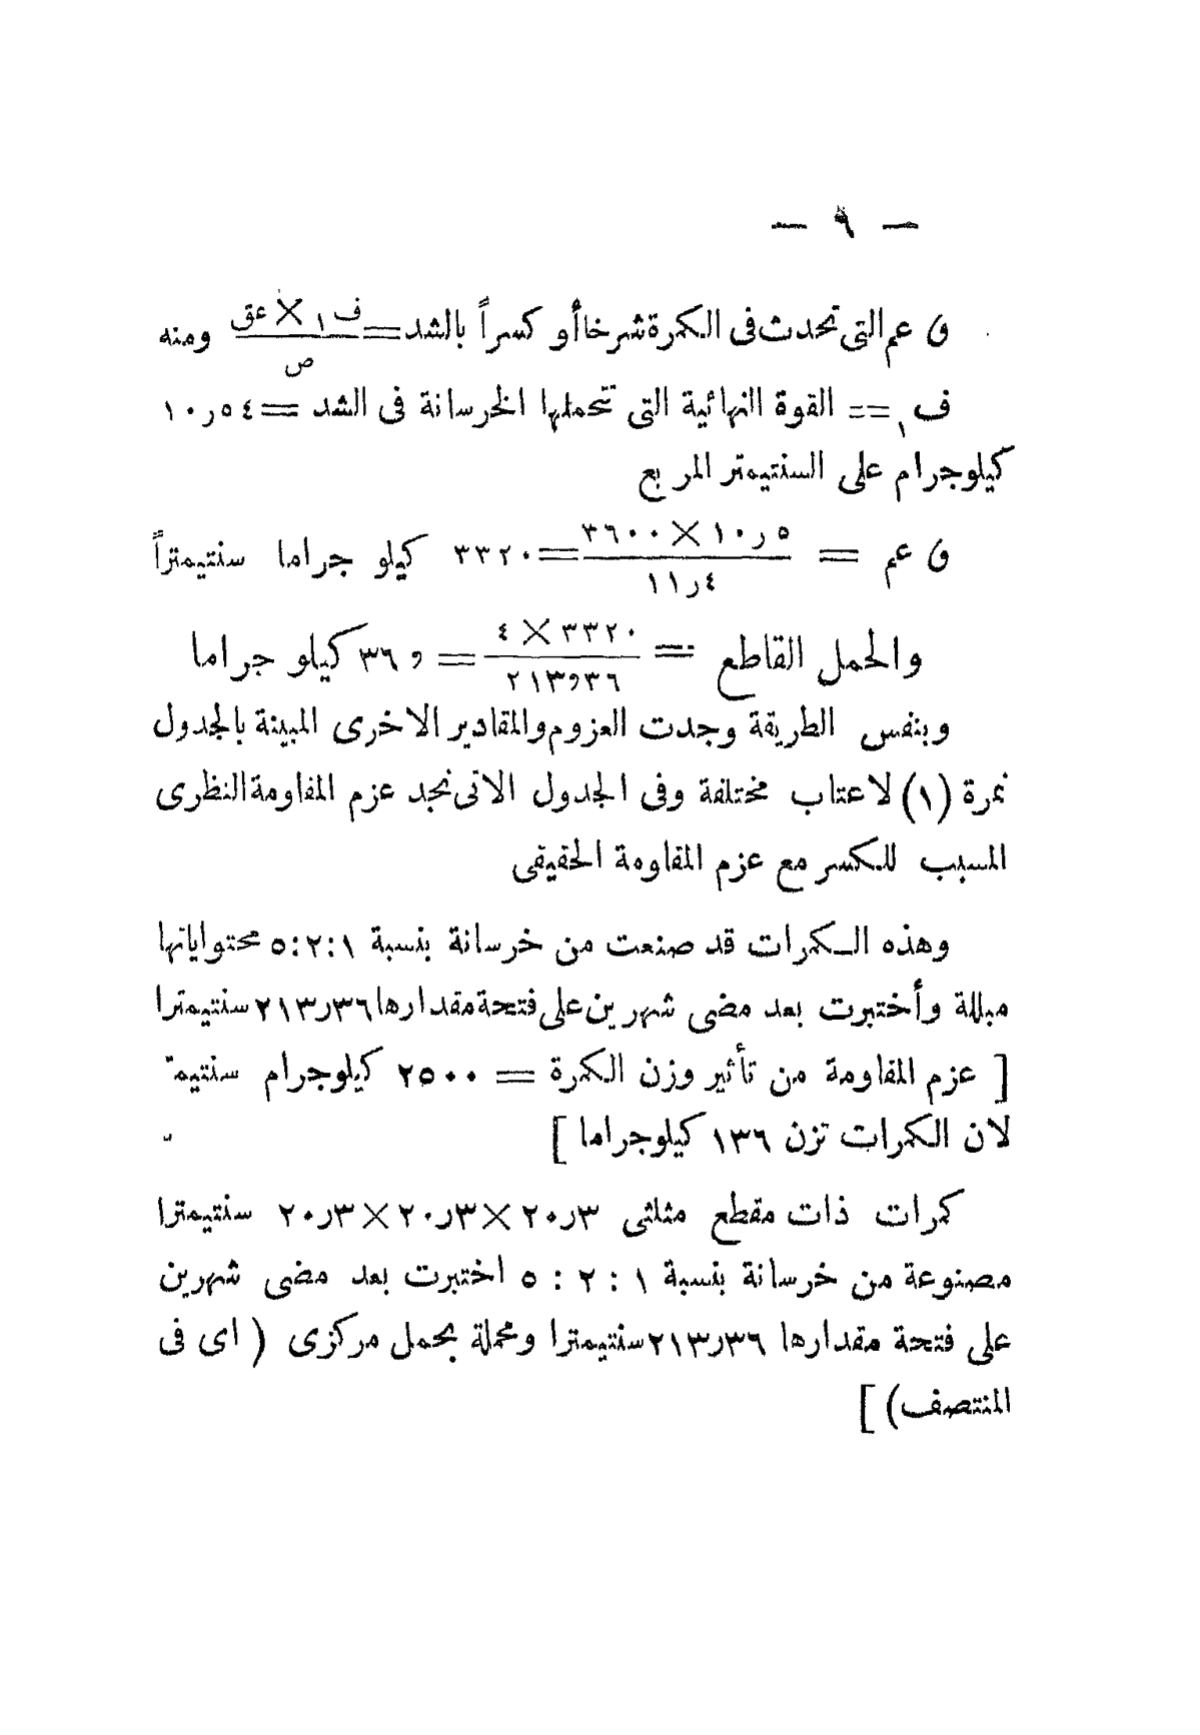 — ٩ —
ق عم التى تحدث فى الكمرة شرخا أو كسراً بالشد = ف١ × عق / ص ومنه
ف١ == القوة النهائية التى تتحملها الخرسانة فى الشد = ٥٤ر١٠
كيلوجرام على السنتيمتر المربع
ق عم = ٥ر١٠ × ٣٦٠٠ / ٤ر١١ = ٣٣٢٠ كيلو جراما سنتيمتراً
والحمل القاطع = ٣٣٢٠ × ٤ / ٢١٣و٣٦ = ٣٦و كيلو جراما
وبنفس الطريقة وجدت العزوم والمقادير الاخرى المبينة بالجدول
نمرة (١) لاعتاب مختلفة وفى الجدول الاتى نجد عزم المقاومة النظرى
المسبب للكسر مع عزم المقاومة الحقيقى
وهذه الكمرات قد صنعت من خرسانة بنسبة ٥:٢:١ محتواياتها
مبللة وأختبرت بعد مضى شهرين على فتحة مقدارها ٣٦ر٢١٣ سنتيمترا
[ عزم المقاومة من تأثير وزن الكمرة = ٢٥٠٠ كيلوجرام سنتيمـ
لان الكمرات تزن ١٣٦ كيلوجراما ]
كمرات ذات مقطع مثلثى ٣ر٢٠×٣ر٢٠×٣ر٢٠ سنتيمترا
مصنوعة من خرسانة بنسبة ١ : ٢ : ٥ اختبرت بعد مضى شهرين
على فتحة مقدارها ٣٦ر٢١٣ سنتيمترا ومحملة بحمل مركزى ( اى فى
المنتصف) ]